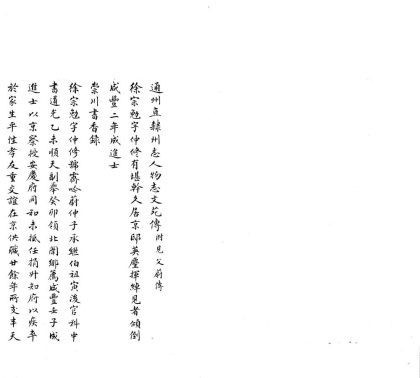 通州直隸州志人物志文苑傳附見父蔚傳
徐宗勉字仲修有堪幹久居京邸英塵揮綽見者傾倒
咸豐二年成進士
崇川書香錄
徐宗勉字仲修號霽吟蔚仲子承繼伯祖寅後官科中
書道光乙未順天副舉癸卯領北闈鄉薦咸豐壬子成
進士以京察授安慶府同知未抵任捐升知府以疾卒
於家生平性孝友重交誼在京供職廿餘年所交半天